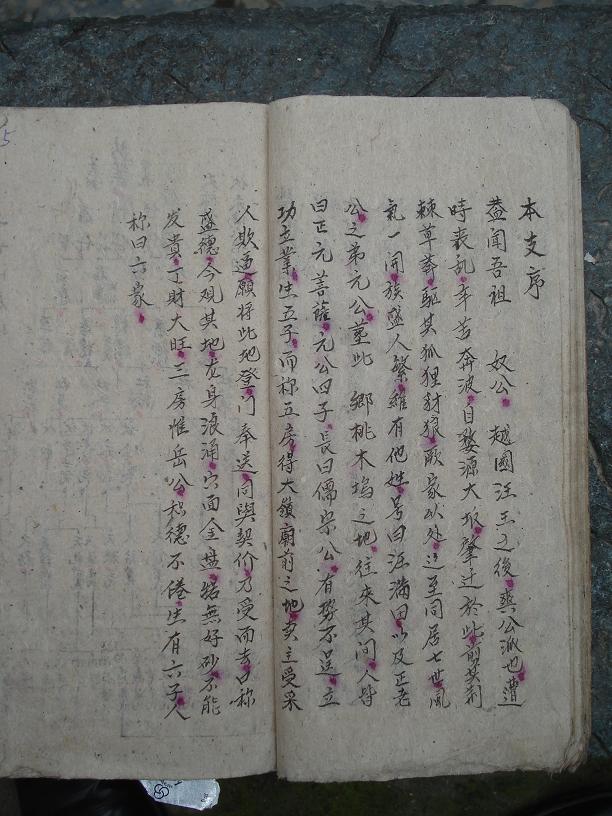 本支序
蓋聞吾祖 奴公 越國汪王之後爽公派也遭
時喪乱辛苦奔波自婺源大坂肇迁於此剪其荆
棘草莽驅其狐狸豺狼厥家以处迨至同居七世風
氣一開族盛人繁雖有他姓号曰汪满田以及正老
公之弟元公墓此 鄉桃木塢之地往來其间人皆
曰正元菩薩元公四子長曰儒宗公有势不逞立
功立業生五子而称五房得大嶺廟前之地卖主受采
人欺逼願将此地登门奉送同與契价方受而去口称
盛德今观其地龙身浪涌穴面金盘结無好砂不能
发贵丁財大旺三房惟岳公积德不倦生有六子人
称曰六家
5